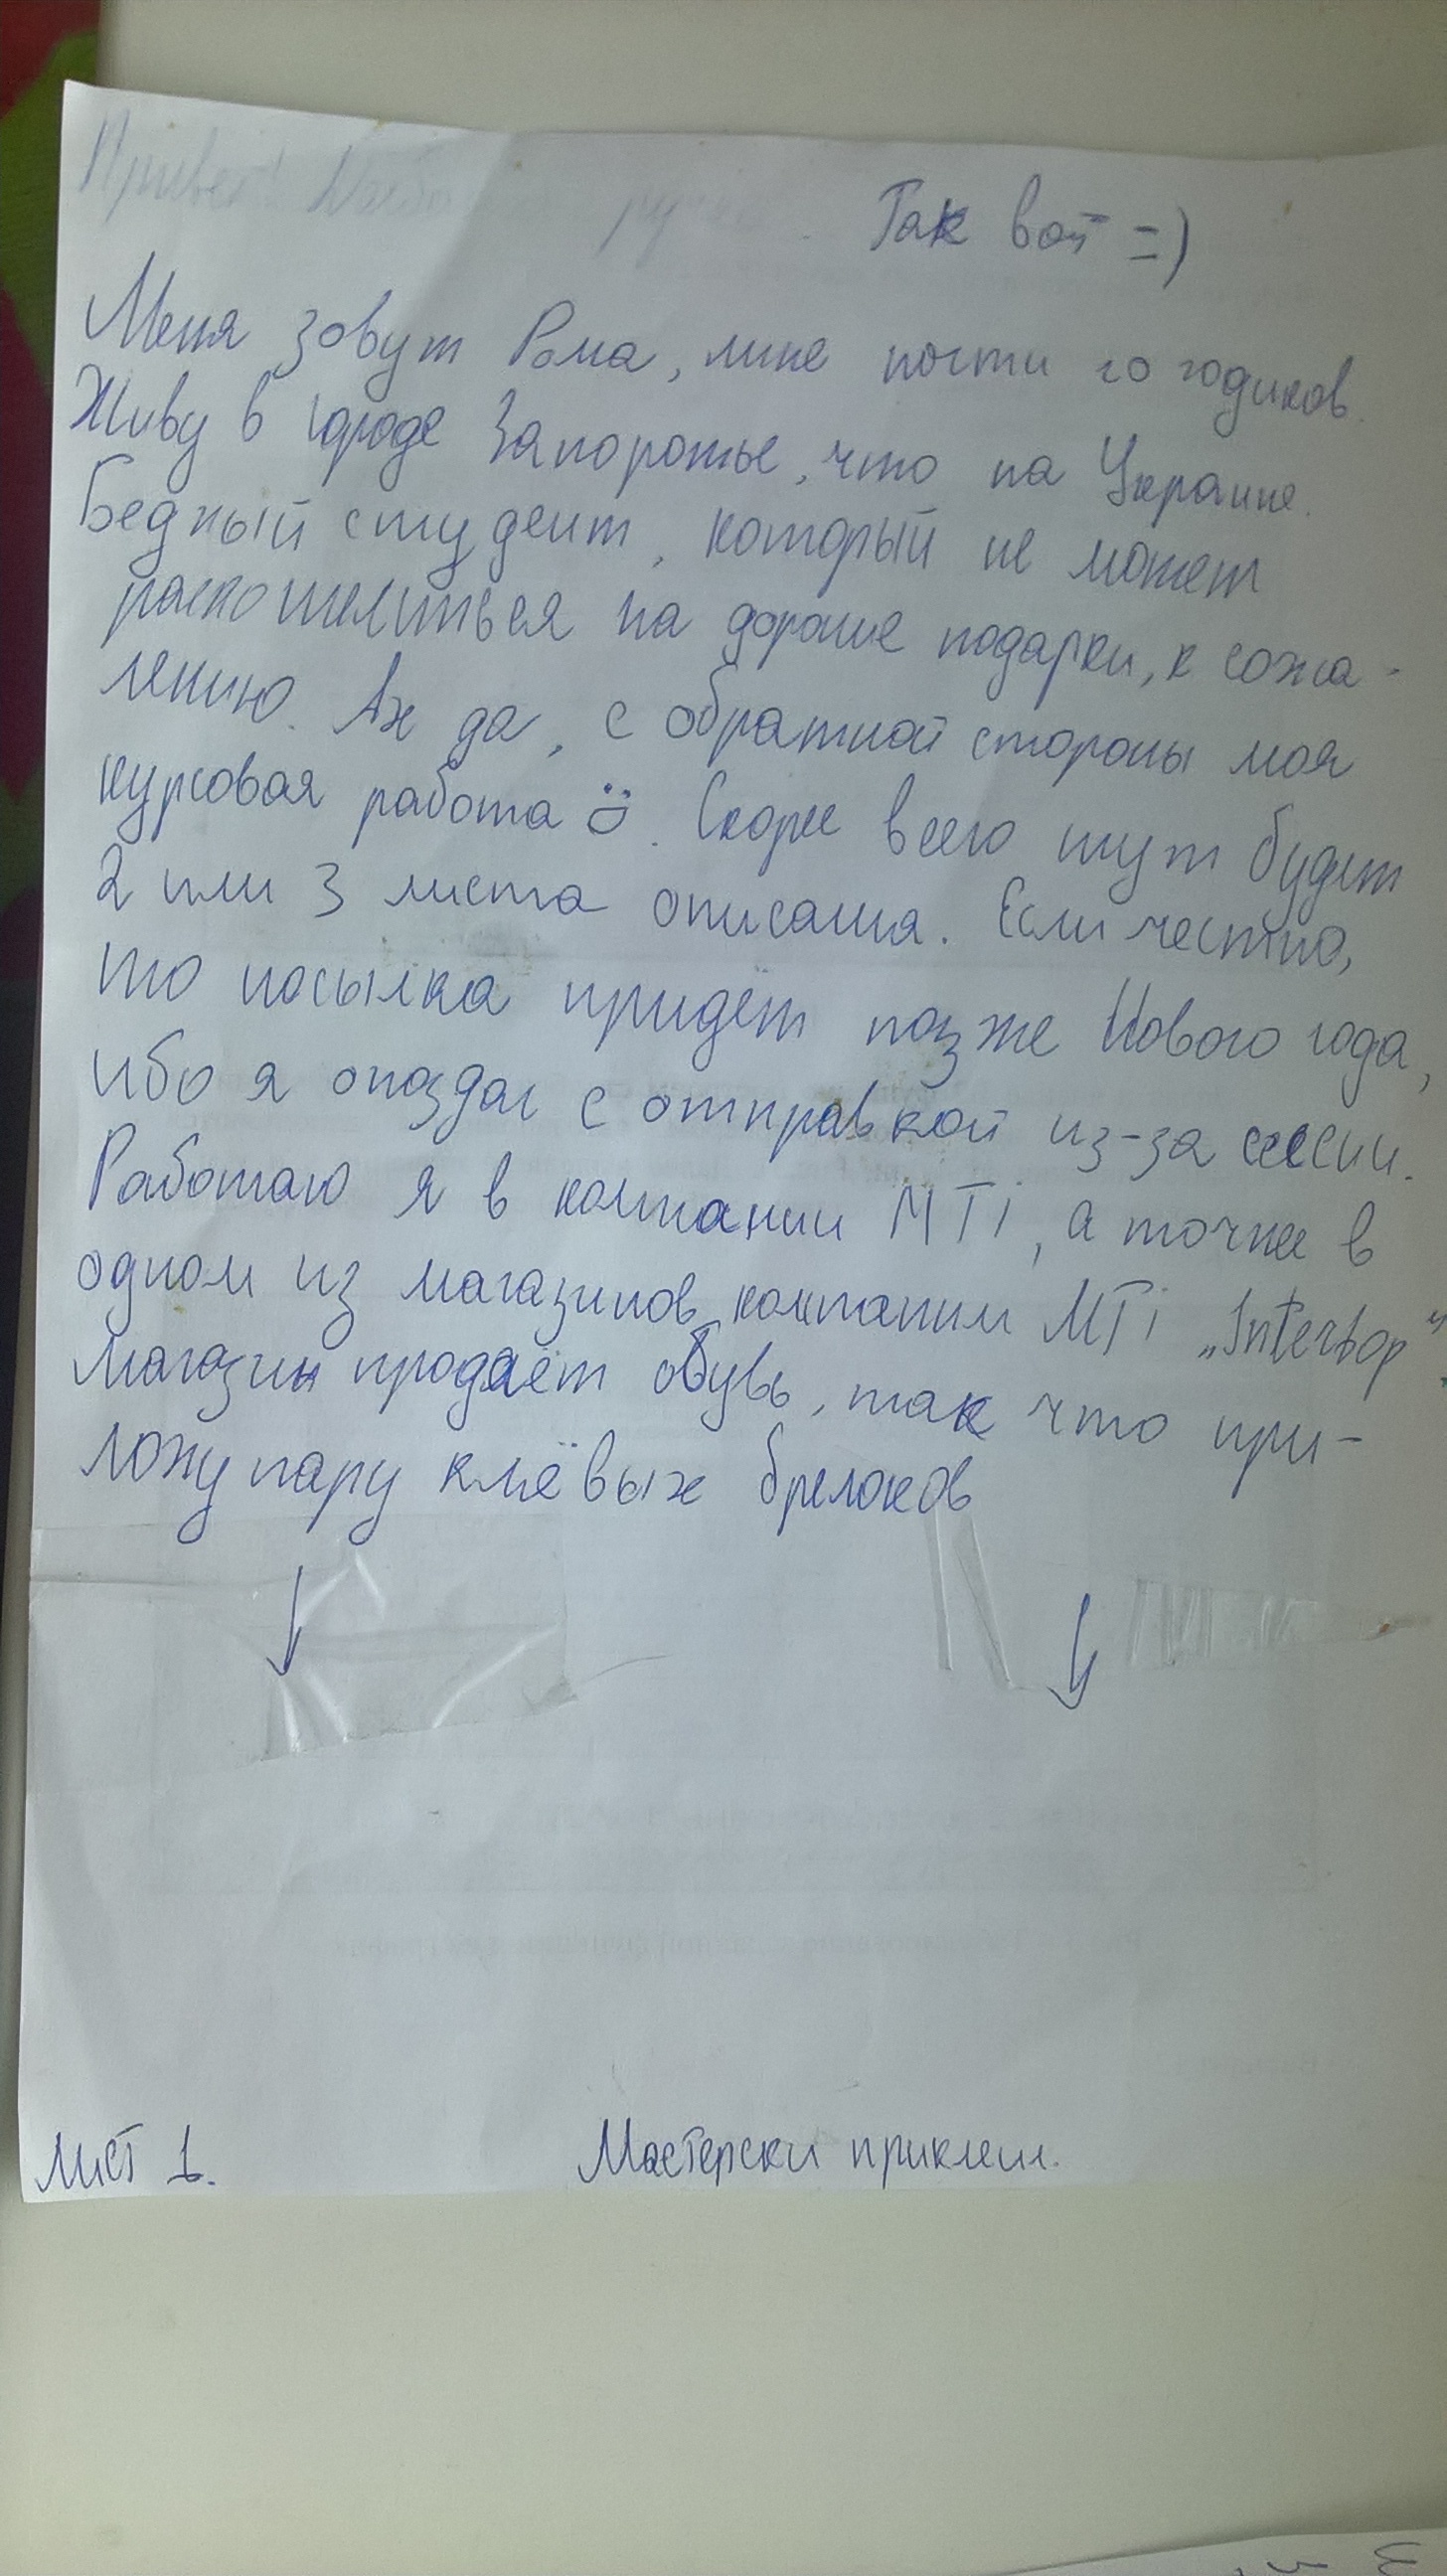 Привет!
Так вот =)
Меня зовут Рома, мне почти 20 годиков.
Живу в городе Запорожье, что на Украине.
Бедный студент, который не может
раскошелиться на дорогие подарки, к сожа-
лению. Ах да, с обратной стороны моя
курсовая работа Ü. Скорее всего тут будет
2 или 3 листа описания. Если честно,
то посылка придёт позже Нового года,
ибо я опоздал с отправкой из-за сессии.
Работаю я в компании MTi, а точнее в
одном из магазинов компании MTi „Intertop"
Магазин продаёт обувь, так что при-
ложу пару клёвых брелоков
Лист 1. Мастерски приклеил.